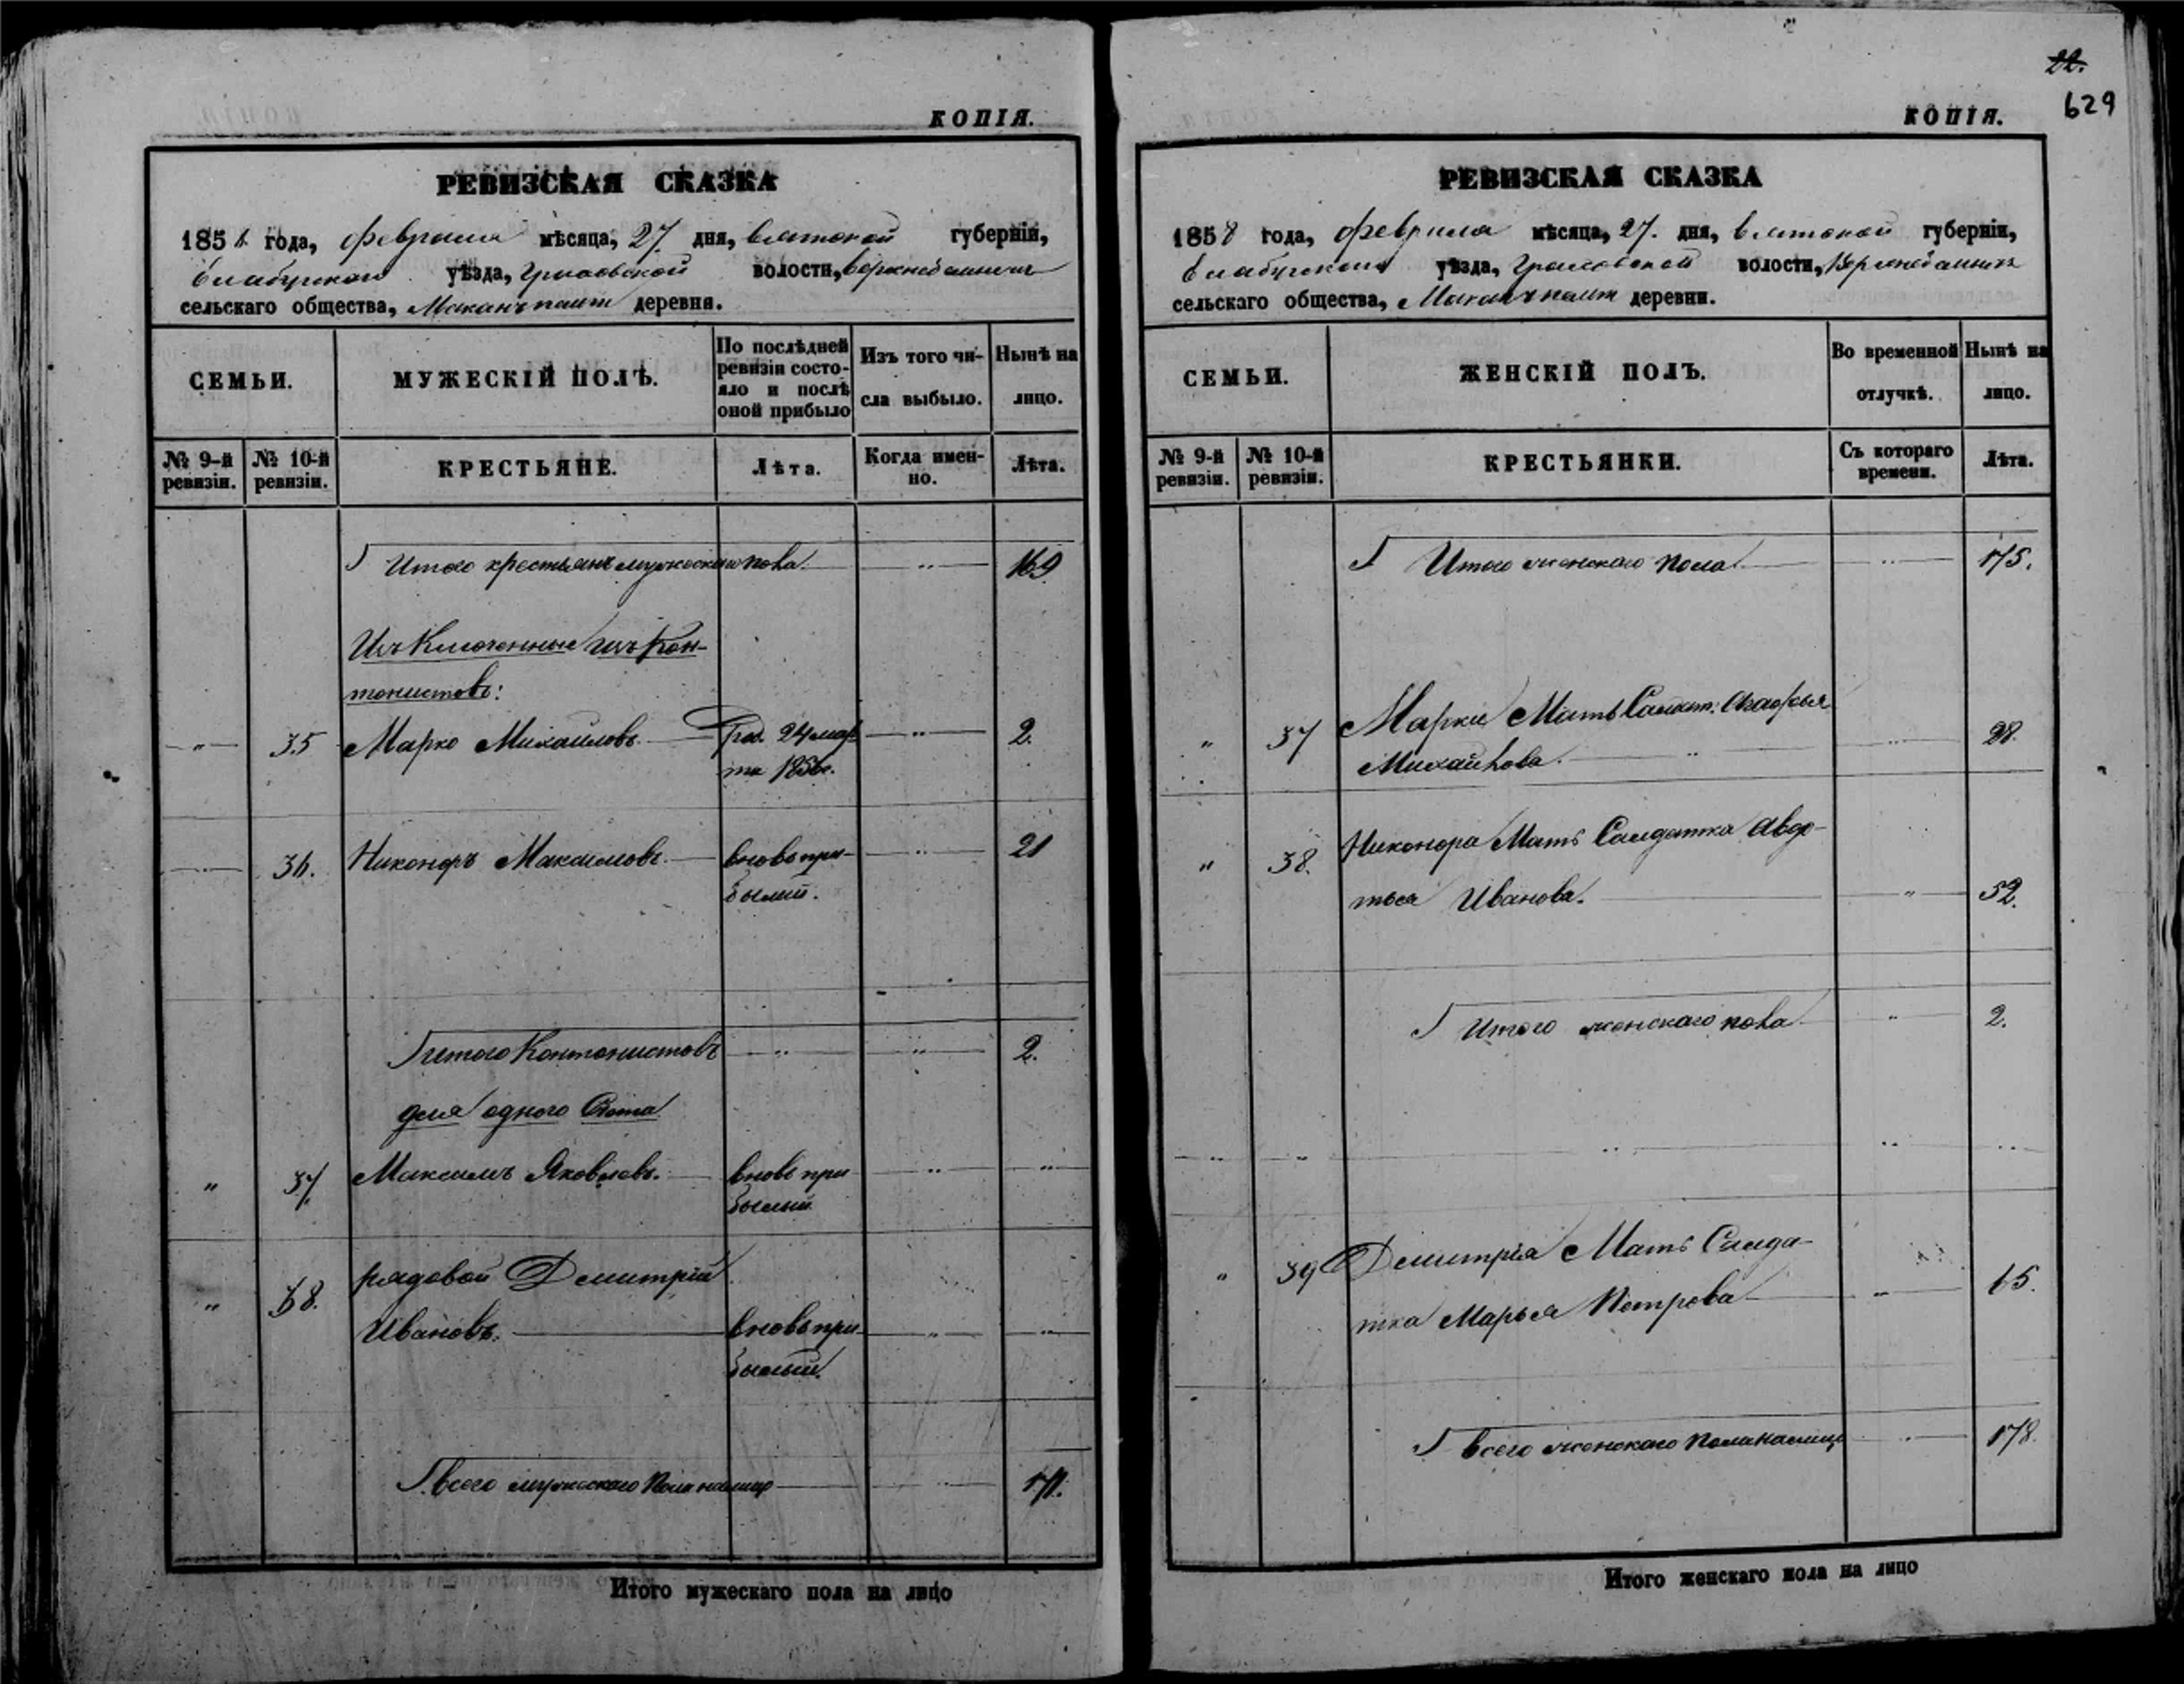 КОПІЯ.
РЕВИЗСКАЯ СКАЗКА
1858 года, февраля мѣсяца, 27 дня, Вятской губерніи,
Елабугскаго уѣзда, Граховской волости,
сельскаго общества, деревня.
СЕМЬИ.
МУЖЕСКІЙ ПОЛЪ.
По послѣдней ревизіи состояло и послѣ оной прибыло
Изъ того числа выбыло.
Нынѣ на лицо.
№ 9-й ревизіи.
№ 10-й ревизіи.
КРЕСТЬЯНЕ.
Лѣта.
Когда именно.
Лѣта.
Итого крестьянъ мужескаго пола. 169
Исключенные изъ Кан-
тонистовъ:
" 35 Марко Михайловъ. Род. 24 мар- " 2.
та 1856г.
36. Никоноръ Максимовъ. вновь при- " 21
былый.
Итого Кантонистовъ " " 2.
для одного счета
" 37. Максимъ Яковлевъ. вновь при- " "
былый
" 38. рядовой Дмитрій
Ивановъ. вновь при- " "
былый.
Всего мужескаго пола налицо 171.
Итого мужескаго пола на лицо
22.
629
КОПІЯ.
РЕВИЗСКАЯ СКАЗКА
1858 года, февраля мѣсяца, 27. дня, Вятской губерніи,
Елабугскаго уѣзда, Граховской волости,
сельскаго общества, деревни.
СЕМЬИ.
ЖЕНСКІЙ ПОЛЪ.
Во временной отлучкѣ.
Нынѣ на лицо.
№ 9-й ревизіи.
№ 10-й ревизіи.
КРЕСТЬЯНКИ.
Съ котораго времени.
Лѣта.
Итого женскаго пола " 175.
" 37 Марки Мать
Михайлова. " 28.
" 38. Никонора Мать Салдатка Авдо-
тья Иванова. " 52.
Итого женскаго пола " 2.
" " " " "
" 39 Дмитрія Мать Салда-
тка Марья Петрова " 65.
Всего женскаго пола налицо " 178.
Итого женскаго пола на лицо